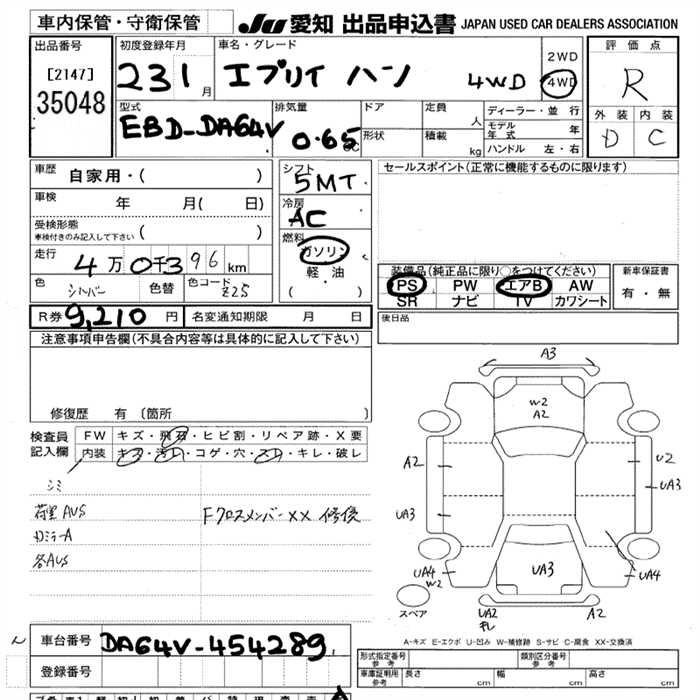 車内保管・守衛保管 JU 愛知 出品申込書 JAPAN USED CAR DEALERS ASSOCIATION
出品番号
[2147]
35048
初度登録年月
23 1 月
車名・グレード
エブリイ バン 4WD
2WD
4WD
評価点
R
外装 内装
D C
型式
EBD-DA64V
排気量
0.65 cc
ドア
形状
定員 人
積載 kg
ディーラー・並行
モデル年式 年
ハンドル 左・右
車歴 自家用・( )
車検 年 月( 日)
受検形態
車検付きのみ記入して下さい ( )
走行 4万0千396km
色 シルバー 色替 色コード Z25
R券 9,210 円 名変通知期限 月 日
シフト
5MT
冷房
AC
燃料
ガソリン
軽・油
( )
セールスポイント(正常に機能するものに限ります)
装備品(純正品に限り○をつけてください)
PS PW エアB AW
SR ナビ TV カワシート
新車保証書
有・無
後日品
注意事項申告欄(不具合内容等は具体的に記入して下さい)
修復歴 有 〔箇所 〕
検査員記入欄
FW キズ・飛石・ヒビ割・リペア跡・X要
内装 キズ・汚れ・コゲ・穴・スレ・キレ・破レ
シミ
荷室AUS
Dミラ-A
各AUS
Fクロスメンバー XX 修復
A3
W2
A2
A2
U2
UA3
UA3
UA3
UA4
W2
UA4
UA2
キレ
A2
スペア
A-キズ E-エクボ U-凹み W-補修跡 S-サビ C-腐食 XX-交換済
車台番号 DA64V-454289
登録番号
形式指定番号
参考
類別区分番号
参考
車庫証明用
参考
長さ cm 幅 cm 高さ cm